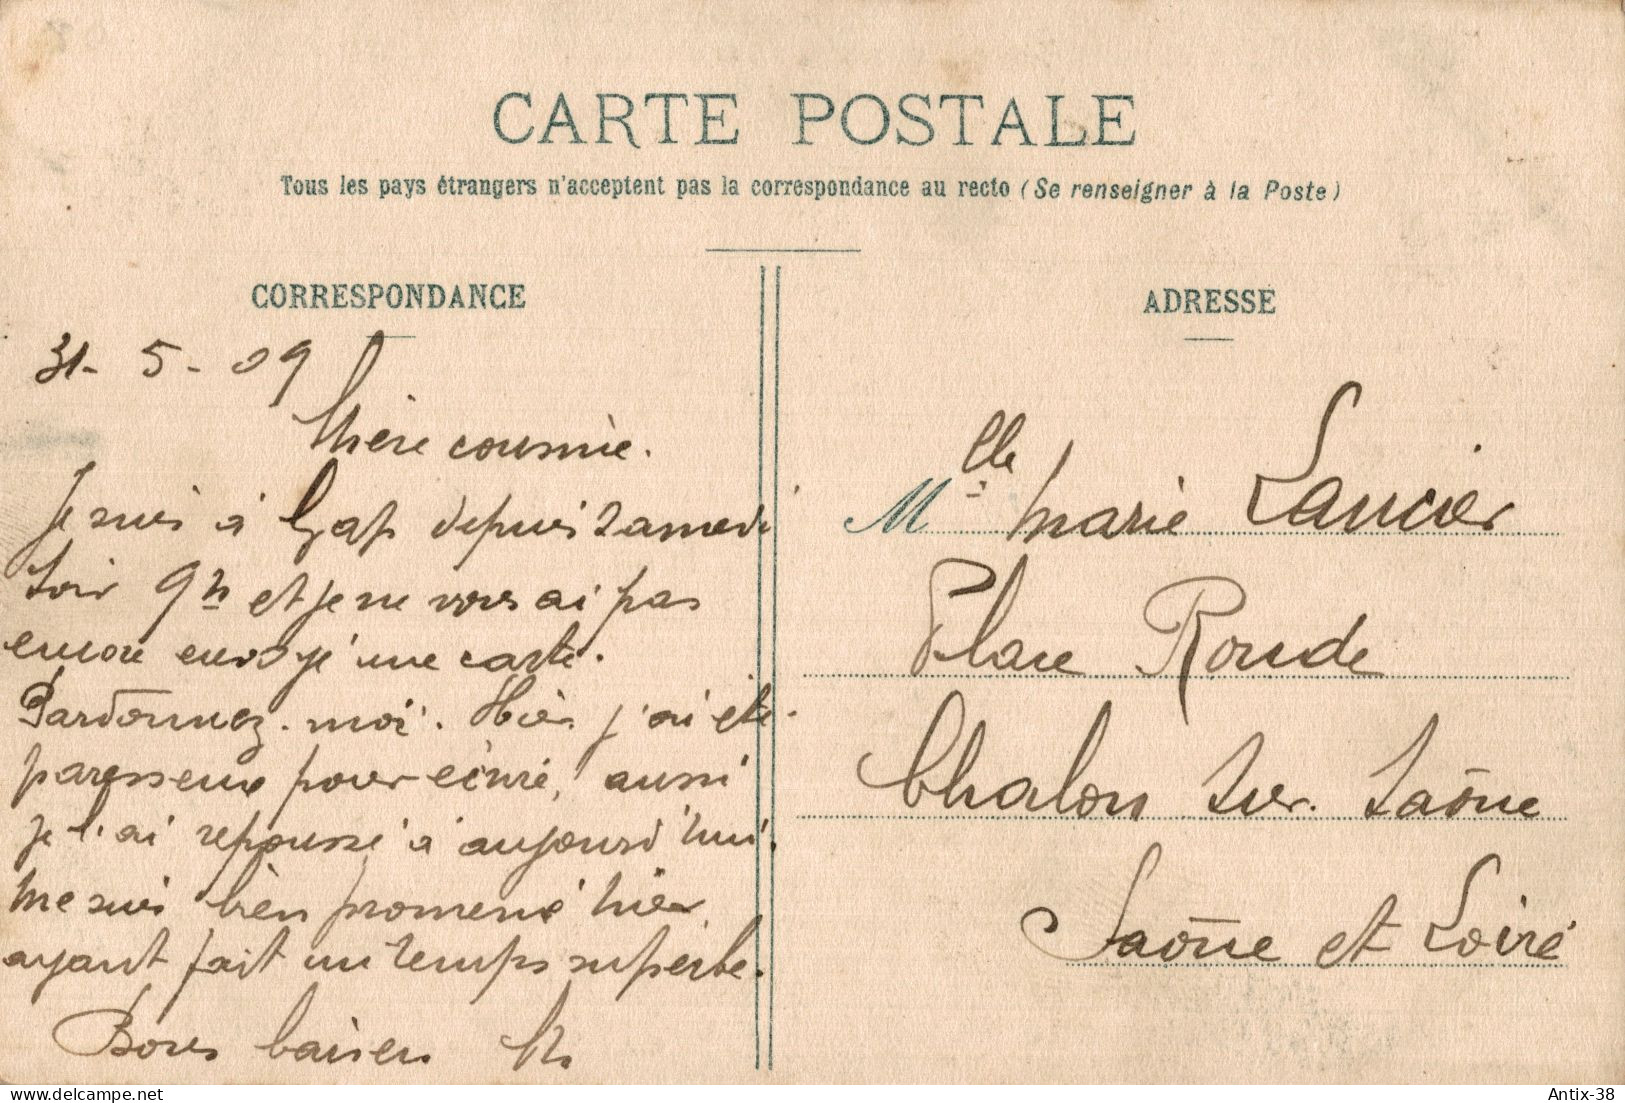 CARTE POSTALE
Tous les pays étrangers n'acceptent pas la correspondance au recto (Se renseigner à la Poste)
CORRESPONDANCE
31-5-09
Chère cousine.
Je suis à Gap depuis samedi
soir 9h et je ne vous ai pas
encore envoyé une carte.
Pardonnez-moi. Hier j'ai été
paresseux pour écrire, aussi
je l'ai repoussé à aujourd'hui.
Me suis bien promené hier
ayant fait un temps superbe.
Bons baisers
ADRESSE
Mlle Marie Lancier
Place Ronde
Chalon sur Saône
Saône et Loire
https://www.delcampe.net
Antix-38